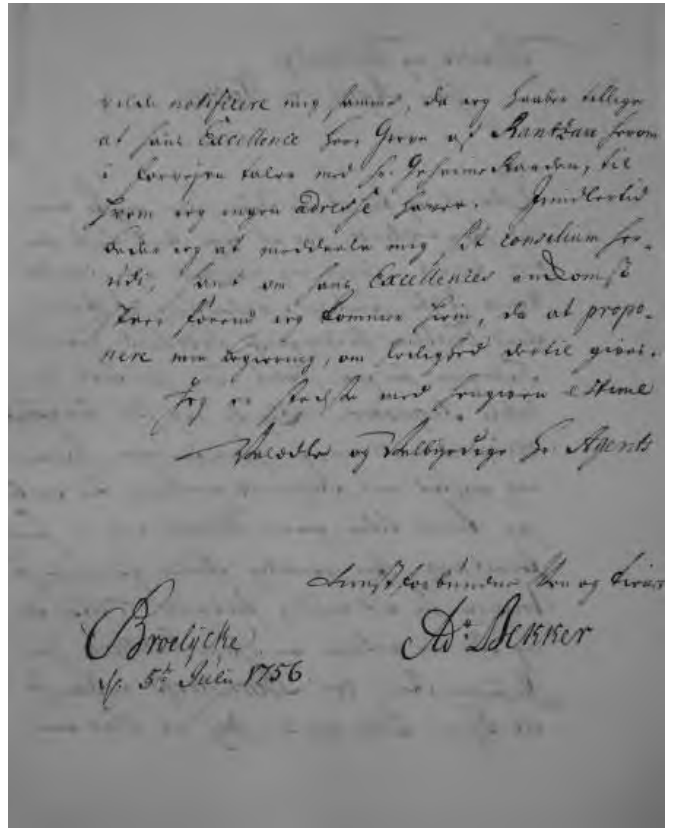 vilde notificere mig samme, da jeg haaber tillige
at hans Excellence Herr Greve af Rantzau herom
i forvejen taler med hr. Geheime Raaden, til
hvem jeg ingen adresse haver. Imidlertid
beder jeg at meddeele mig sit consilium her-
udi, samt om hans Excellences ankomst
skeer förend jeg kommer hiem, da at propo-
nere min begiering, om leilighed dertil gives.
Jeg er stedse med hengiven estime
Velædle og Velbyrdige Hr. Agents
tienstforbundne Ven og tiener
Broelÿcke
d. 5te Julii 1756
Ad. Bekker